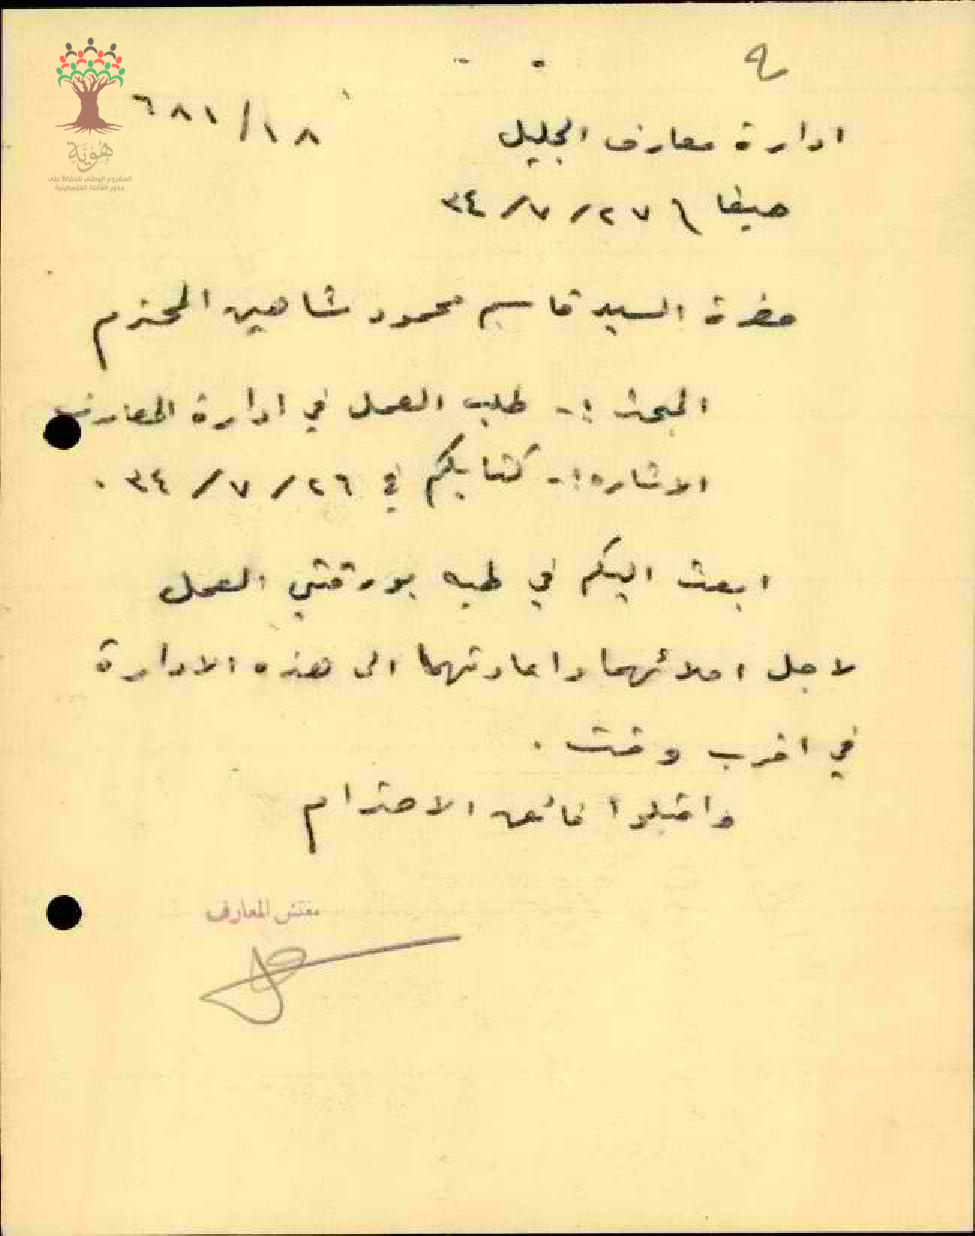 ٩
ادارة معارف الجليل
٦٨١/١٨
حيفا \ ٢٧/٧/٣٤
حضرة السيد قاسم محمود شاهين المحترم
المبحث :- طلب العمل في ادارة المعارف
الاشارة :- كتابكم في ٢٦/٧/٣٤ .
ابعث اليكم في طيه بورقتي العمل
لاجل املائهما واعادتهما الى هذه الادارة
في اقرب وقت .
واقبلوا فائق الاحترام
مفتش المعارف
هوية
المشروع الوطني للحفاظ على
جذور العائلة الفلسطينية